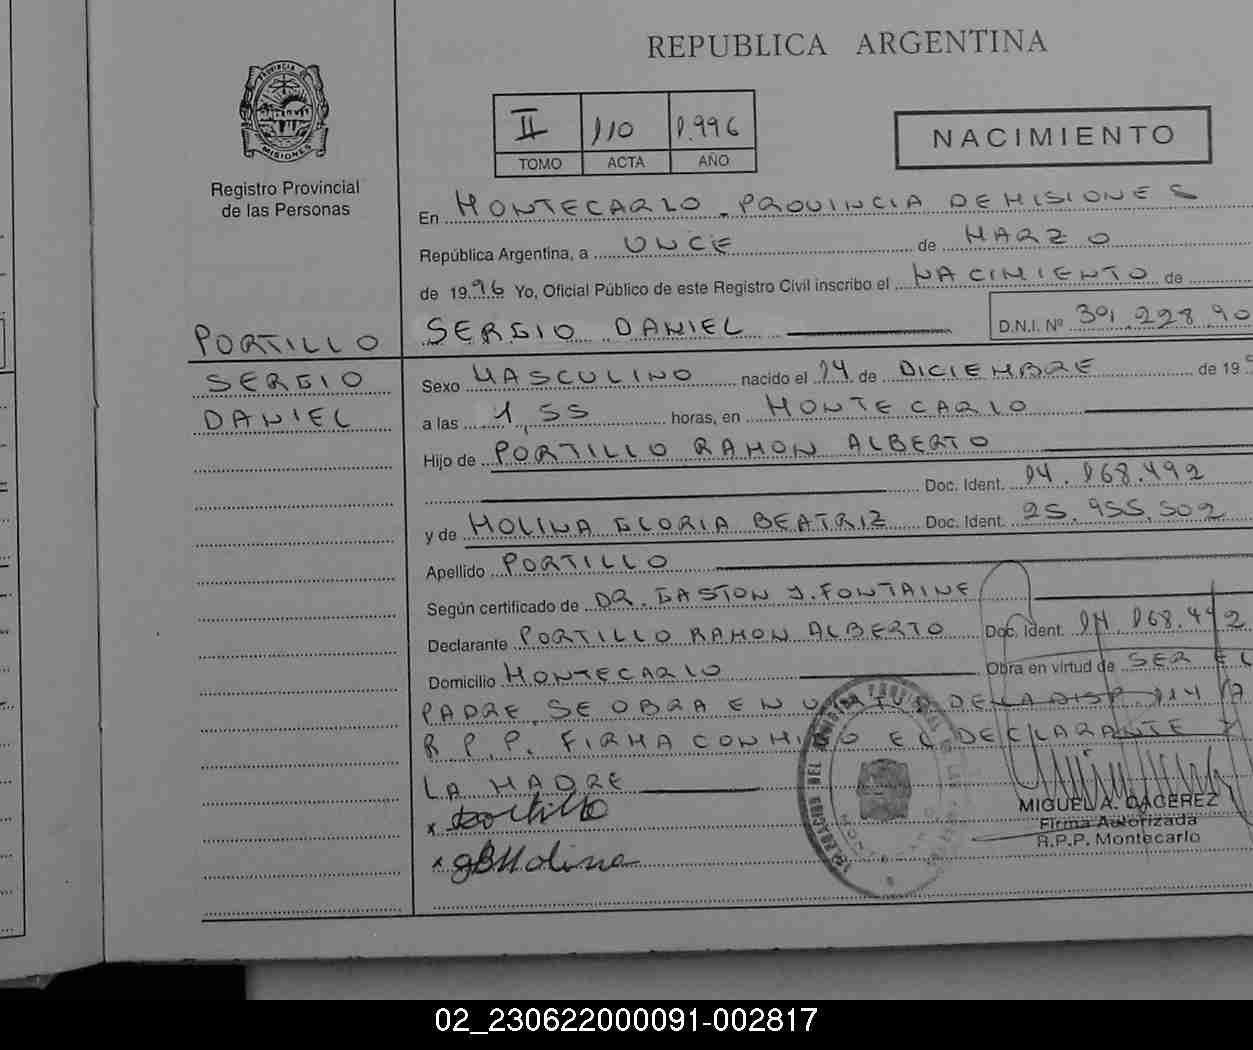 REPUBLICA ARGENTINA
PROVINCIA DE
MISIONES
Registro Provincial
de las Personas
II 110 1.996
TOMO ACTA AÑO
NACIMIENTO
En MONTECARLO . PROVINCIA DE MISIONES
República Argentina, a ONCE de MARZO
de 1996 Yo, Oficial Público de este Registro Civil inscribo el NACIMIENTO de
SERGIO DANIEL D.N.I. Nº 39.228.90
PORTILLO
SERGIO
DANIEL
Sexo MASCULINO nacido el 14 de DICIEMBRE de 19
a las 1,55 horas, en MONTECARLO
Hijo de PORTILLO RAMON ALBERTO
Doc. Ident. 14.168.492
y de MOLINA GLORIA BEATRIZ Doc. Ident. 25.955.502
Apellido PORTILLO
Según certificado de DR. GASTON J. FONTAINE
Declarante PORTILLO RAMON ALBERTO Doc. Ident. 14.168.492
Domicilio MONTECARLO Obra en virtud de SER EL
PADRE, SE OBRA EN VIRTUD DE LA DISP. 114/
R.P.P. FIRMA CONMIGO EL DECLARANTE Y
LA MADRE
x Portillo
x GBMolina
MIGUEL A. CACEREZ
Firma Autorizada
R.P.P. Montecarlo
02_230622000091-002817